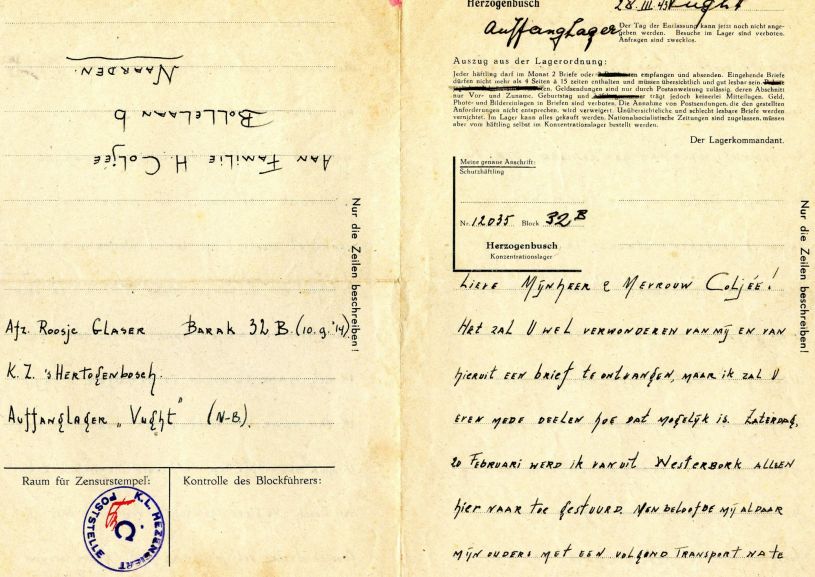 NAARDEN.
BOLLELAAN 6
AAN FAMILIE H. COLJÉE
Nur die Zeilen beschreiben!
AFZ. ROOSJE GLASER BARAK 32 B. (10.9.'14).
K.Z. 'SHERTOGENBOSCH.
AUFFANGLAGER „VUGHT" (N-B).
Raum für Zensurstempel:
Kontrolle des Blockführers:
K.L. HEZENBERT
POSTSTELLE
C
Herzogenbusch
28.III.43 Vught
Auffanglager
Der Tag der Entlassung kann jetzt noch nicht ange-
geben werden. Besuche im Lager sind verboten.
Anfragen sind zwecklos.
Auszug aus der Lagerordnung:
Jeder häftling darf im Monat 2 Briefe oder empfangen und absenden. Eingehende Briefe
dürfen nicht mehr als 4 Seiten à 15 zeilen enthalten und müssen übersichtlich und gut lesbar sein.
Geldsendungen sind nur durch Postanweisung zulässig, deren Abschnitt
nur Vor- und Zuname, Geburtstag und trägt jedoch keinerlei Mitteilungen. Geld,
Photo- und Bildereinlagen in Briefen sind verboten. Die Annahme von Postsendungen, die den gestellten
Anforderungen nicht entsprechen, wird verweigert. Unübersichtliche und schlecht lesbare Briefe werden
vernichtet. Im Lager kann alles gekauft werden. Nationalsocialistische Zeitungen sind zugelassen, müssen
aber vom häftling selbst im Konzentrationslager bestellt werden.
Der Lagerkommandant.
Meine genaue Anschrift:
Schutzhäftling
Nr. 12035 Block 32 B
Herzogenbusch
Konzentrationslager
LIEVE MIJNHEER & MEVROUW COLJÉE!
HET ZAL U WEL VERWONDEREN VAN MIJ EN VAN
HIERUIT EEN BRIEF TE ONTVANGEN, MAAR IK ZAL U
EVEN MEDE DEELEN HOE DAT MOGELIJK IS. ZATERDAG,
20 FEBRUARI WERD IK VANUIT WESTERBORK ALLEEN
HIER NAAR TOE GESTUURD. MEN BELOOFDE MIJ ALDAAR
MIJN OUDERS MET EEN VOLGEND TRANSPORT NA TE
Nur die Zeilen beschreiben!